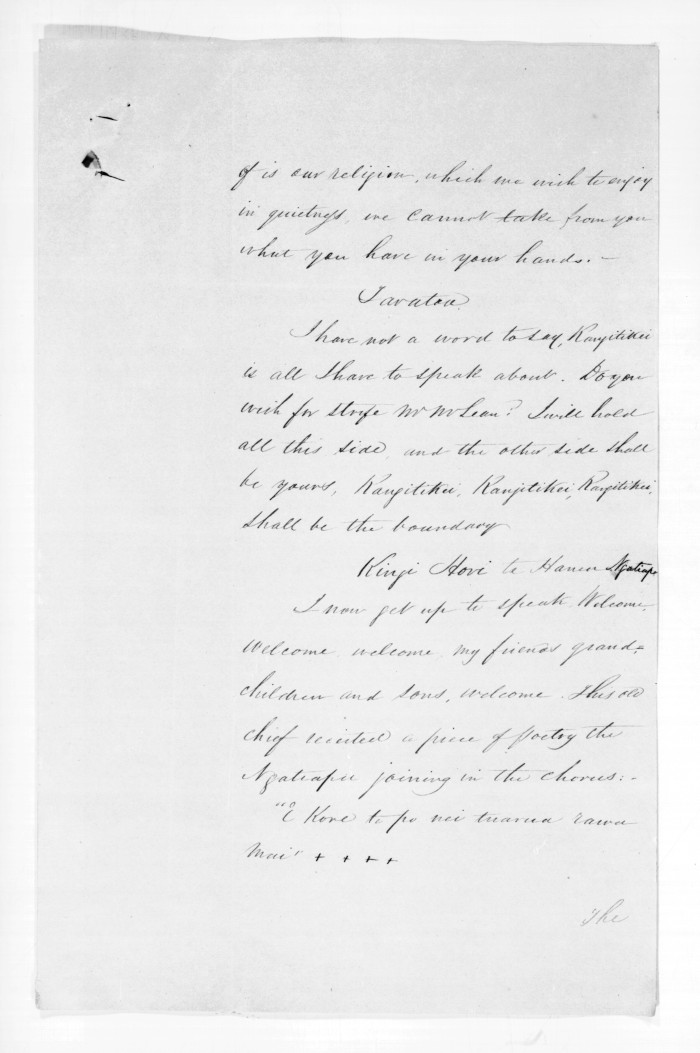 of is our religion, which we wish to enjoy
in quietness, we cannot take from you
what you have in your hands. -
Taratoa.
I have not a word to say, Rangitikei
is all I have to speak about. Do you
wish for strife Mr McLean? I will hold
all this side, and the other side shall
be yours, Rangitikei, Rangitikei, Rangitikei,
shall be the boundary
Kingi Hori te Hanea Ngatiapa
I now get up to speak. Welcome,
welcome, welcome, my friends grand=
children and sons, welcome. This old
chief recited a piece of Poetry the
Ngatiapa joining in the chorus: -
"E Kore te po nei
mai" + + + +
The